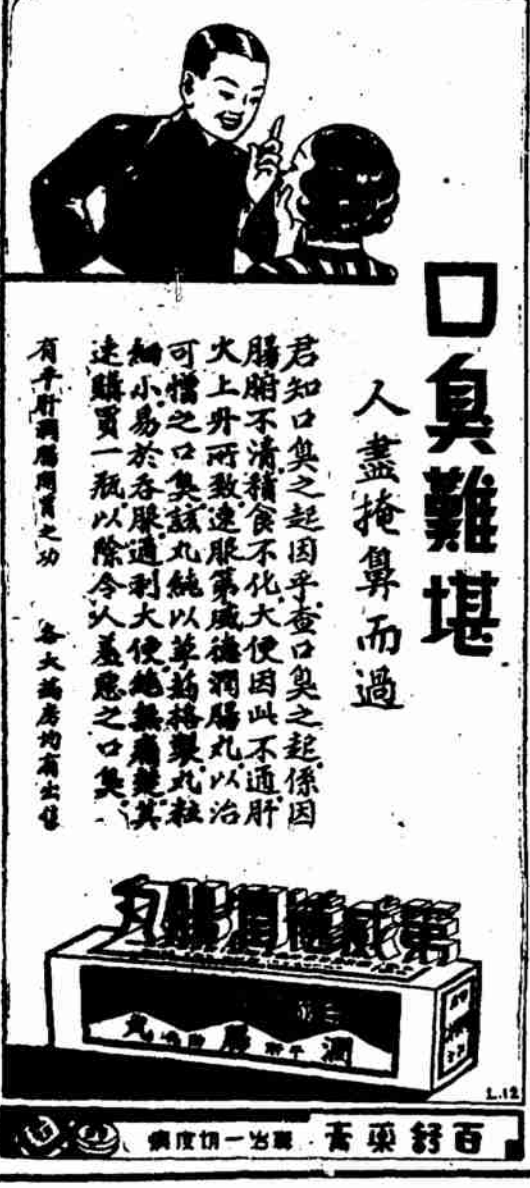 口臭難堪
人盡掩鼻而過
君知口臭之起因乎查口臭之起係因
腸腑不清積食不化大便因此不通肝
火上升所致速服第威德潤腸丸以治
可憎之口臭該丸純以草藥搭製丸粒
細小易於吞服通利大便絕無痛楚其
速購買一瓶以除令人羞惡之口臭
有平肝潤腸開胃之功
各大藥房均有出售
第威德潤腸丸
潤腸丸
L.12
百舒藥膏
專治一切皮膚